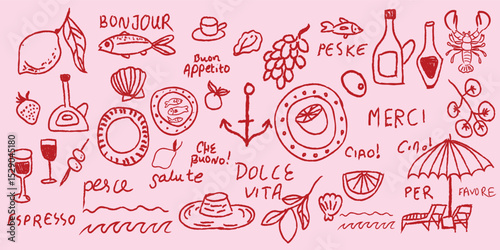 BONJOUR
Buon
Appetito
PESKE
MERCI
CHE
BUONO!
CIAO!
Ciao!
pesce
salute
DOLCE
VITA
PER
FAVORE
ESPRESSO
Adobe Stock | #1529045180